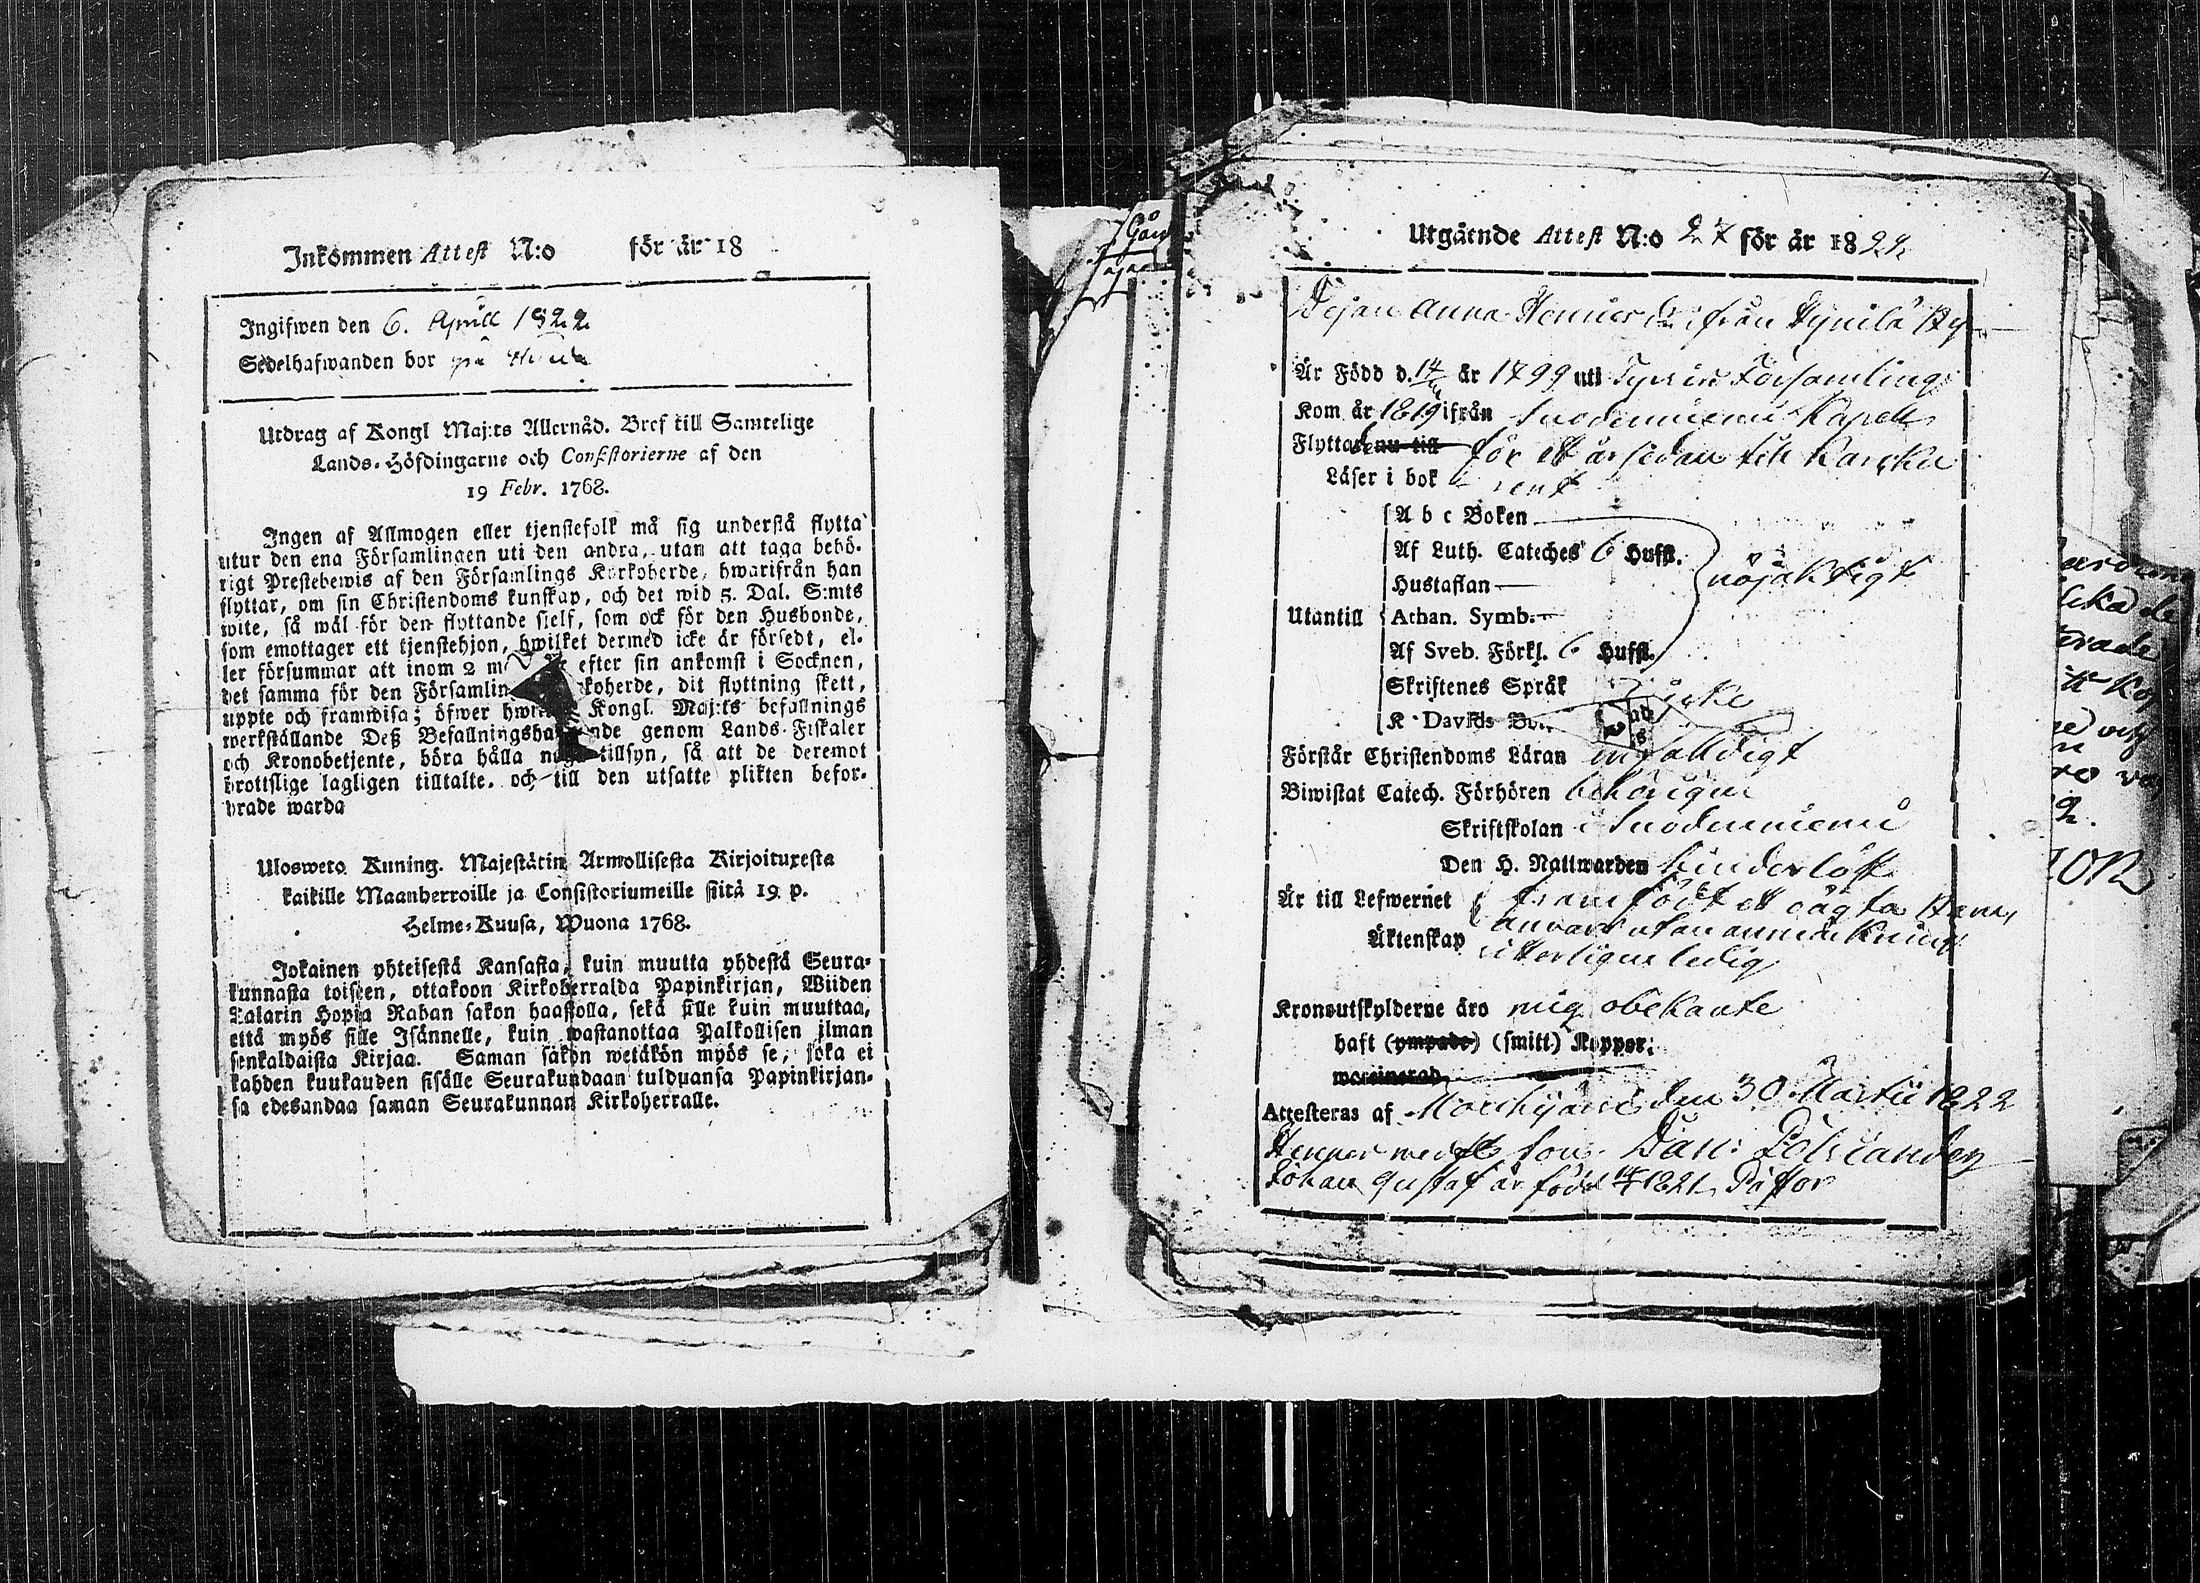 Inkommen Attest N:o för år 18
Ingifwen den 6. Aprill 1822
Sedelhafwanden bor på
Utdrag af Kongl Maj:ts Allernåd. Bref till Samtelige
Lands-Höfdingarne och Consistorierne af den
19 Febr. 1768.
Ingen af Allmogen eller tjenstefolk må sig understå flytta
utur den ena Församlingen uti den andra, utan att taga behö-
rigt Prestebewis af den Församlings Kyrkoherde, hwarifrån han
flyttar, om sin Christendoms kunskap, och det wid 5. Dal. S:mts
wite, så wäl för den flyttande sielf, som ock för den Husbonde,
som emottager ett tjenstehjon, hwilket dermed icke är försedt, el-
ler försummar att inom 2 efter sin ankomst i Socknen,
det samma för den Församlin koherde, dit flyttning skett,
uppte och framwisa; öfwer hwi Kongl. Maj:ts befallnings
werkställande Deß Befallningsha nde genom Lands-Fiskaler
och Kronobetjente, böra hålla noga tillsyn, så att de deremot
brottslige lagligen tilltalte, och till den utsatte plikten befor-
drade warda
Ulosweto Kuning. Majestätin Armollisesta Kirjoituxesta
kaikille Maanherroille ja Consistoriumeille siitä 19 p.
Helme-Kuusa, Wuona 1768.
Jokainen yhteisestä Kansasta, kuin muutta yhdestä Seura-
kunnasta toiseen, ottakoon Kirkoherralda Papinkirjan, Wiiden
Talarin Hopia Rahan sakon haastolla, sekä sille kuin muuttaa,
että myös sille Isännelle, kuin wastanottaa Palkollisen ilman
senkaldaista Kirjaa. Saman sakon wetäkön myös se, joka ei
kahden kuukauden sisälle Seurakundaan tulduansa Papinkirjan-
sa edesandaa saman Seurakunnan Kirkoherralle.
Utgående Attest N:o 27 för år 1822
Pejan Anna Henricsdr ifrån Hynilä By
Är Född d. 14 år 1799 uti Församling
Kom år 1819 ifrån Suodenniemi Kapell
Flyttade nu till för ett år sedan till Karcku
Läser i bok rent
A b c Boken
Af Luth. Cateches 6 Hufst.
Hustaflan
nöjaktigt
Utantill
Athan. Symb.
Af Sveb. Förkl. 6 Hufst.
Skriftenes Språk icke
K Davids
Förstår Christendoms Läran enfalldigt
Biwistat Catech. Förhören behörigen
Skriftskolan i Suodenniemi
Den H. Nattwarden hinderlöst
Är till Lefwernet framfödt et oägta Barn,
annars utan anmärkning
Äktenskap witterligen ledig
Kronoutskylderne äro mig obekante
haft (ympade) (smitt.) Koppor.
waccinerad
Attesteras af Mouhijärvi den 30 Martii 1822
Hennes medf. Son Dan: Polviander
Johan Gustaf är född 1821 Pastor